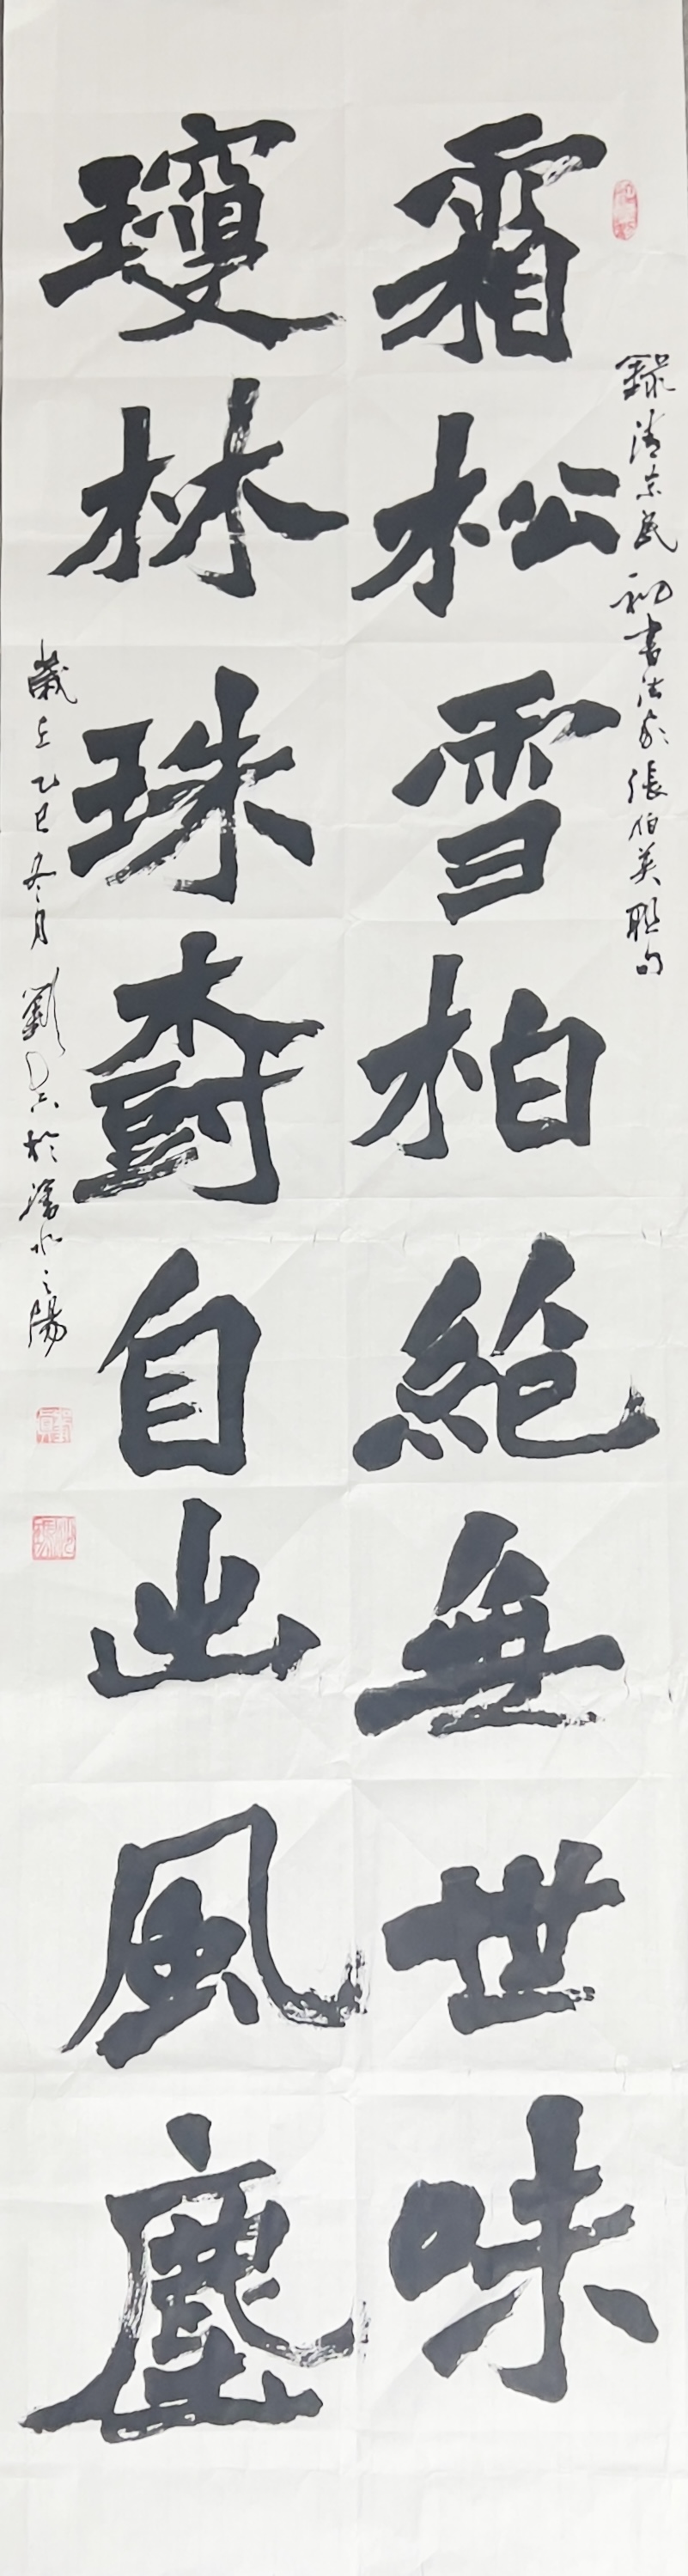 録清末民初書法家張伯英聯句
霜松雪柏絶無世味
瓊林珠樹自出風塵
歲在乙巳冬月劉於水之陽